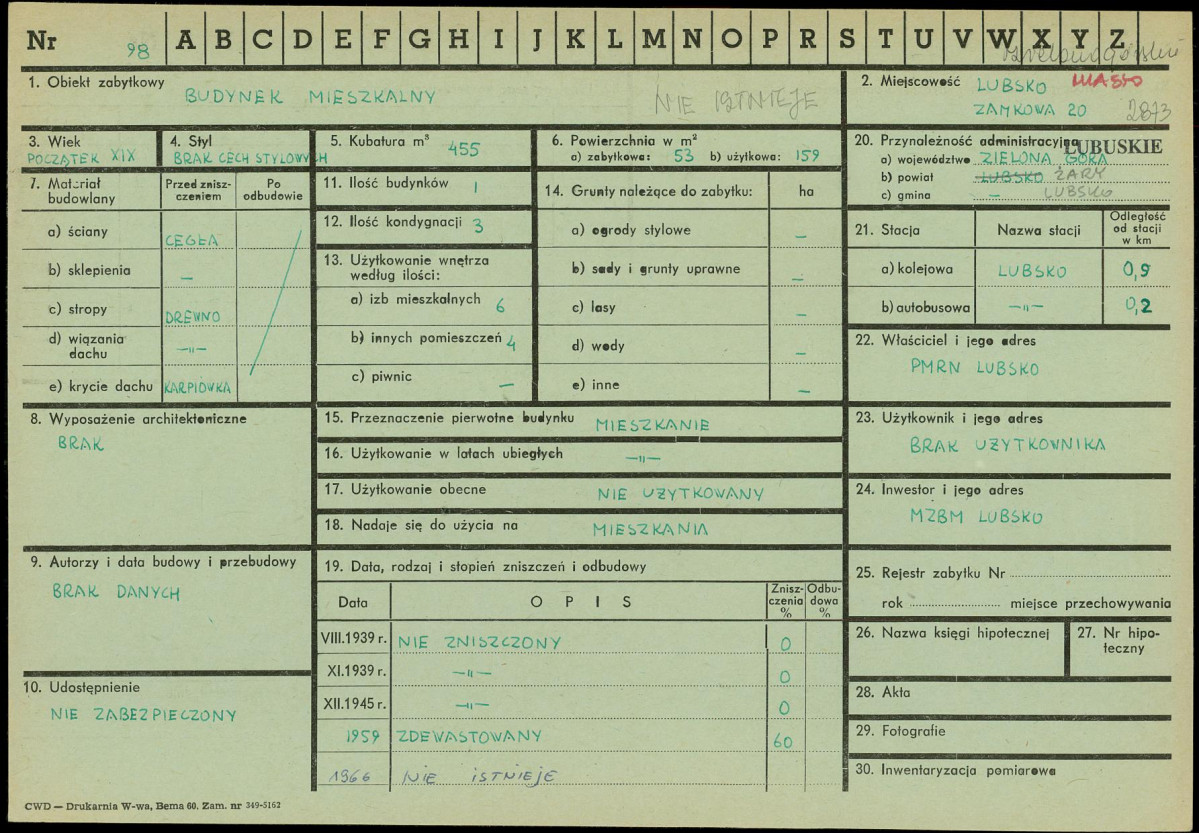 Nr 98 A B C D E F G H I J K L M N O P R S T U V W X Y Z
1. Obiekt zabytkowy
BUDYNEK MIESZKALNY
NIE ISTNIEJE
2. Miejscowość LUBSKO MIASTO
ZAMKOWA 20 2873
3. Wiek
POCZĄTEK XIX
4. Styl
BRAK CECH STYLOWYCH
5. Kubatura m³ 455
6. Powierzchnia w m²
a) zabytkowa: 53 b) użytkowa: 159
20. Przynależność administracyjna
LUBUSKIE
a) województwo ZIELONA GÓRA
b) powiat LUBSKO ŻARY
c) gmina – LUBSKO
7. Materiał budowlany
Przed znisz-
czeniem
Po
odbudowie
a) ściany CEGŁA
b) sklepienia –
c) stropy DREWNO
d) wiązania
dachu –„–
e) krycie dachu KARPIÓWKA
11. Ilość budynków 1
12. Ilość kondygnacji 3
13. Użytkowanie wnętrza
według ilości:
a) izb mieszkalnych 6
b) innych pomieszczeń 4
c) piwnic –
14. Grunty należące do zabytku: ha
a) ogrody stylowe –
b) sady i grunty uprawne –
c) lasy –
d) wody –
e) inne –
21. Stacja Nazwa stacji
Odległość
od stacji
w km
a) kolejowa LUBSKO 0,9
b) autobusowa –„– 0,2
22. Właściciel i jego adres
PMRN LUBSKO
8. Wyposażenie architektoniczne
BRAK
15. Przeznaczenie pierwotne budynku MIESZKANIE
16. Użytkowanie w latach ubiegłych –„–
17. Użytkowanie obecne NIE UŻYTKOWANY
18. Nadaje się do użycia na MIESZKANIA
23. Użytkownik i jego adres
BRAK UŻYTKOWNIKA
24. Inwestor i jego adres
MZBM LUBSKO
9. Autorzy i data budowy i przebudowy
BRAK DANYCH
10. Udostępnienie
NIE ZABEZPIECZONY
19. Data, rodzaj i stopień zniszczeń i odbudowy
Data OPIS
Znisz-
czenia
%
Odbu-
dowa
%
VIII.1939 r. NIE ZNISZCZONY 0
XI.1939 r. –„– 0
XII.1945 r. –„– 0
1959 ZDEWASTOWANY 60
1966 NIE ISTNIEJE
25. Rejestr zabytku Nr
rok miejsce przechowywania
26. Nazwa księgi hipotecznej
27. Nr hipo-
teczny
28. Akta
29. Fotografie
30. Inwentaryzacja pomiarowa
CWD — Drukarnia W-wa, Bema 60. Zam. nr 349-5162